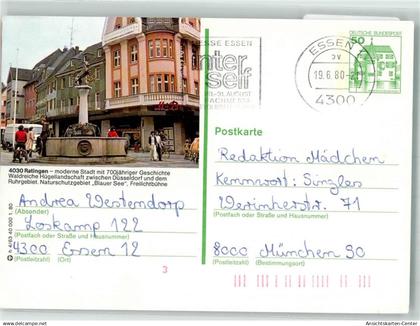 MESSE ESSEN
inter
self
31. AUGUST
ESSEN 1
bv
19.6.80
4300
50
DEUTSCHE BUNDESPOST
Postkarte
4030 Ratingen – moderne Stadt mit 700jähriger Geschichte
Waldreiche Hügellandschaft zwischen Düsseldorf und dem
Ruhrgebiet. Naturschutzgebiet „Blauer See“, Freilichtbühne
Andrea Westendorp
(Absender)
Loskamp 122
(Postfach oder Straße und Hausnummer)
4300 Essen 12
(Postleitzahl) (Ort)
3
Redaktion Mädchen
Kennwort: Singles
Weinherstr. 71
(Postfach oder Straße und Hausnummer)
8000 München 90
(Postleitzahl) (Bestimmungsort)
Ansichtskarten-Center